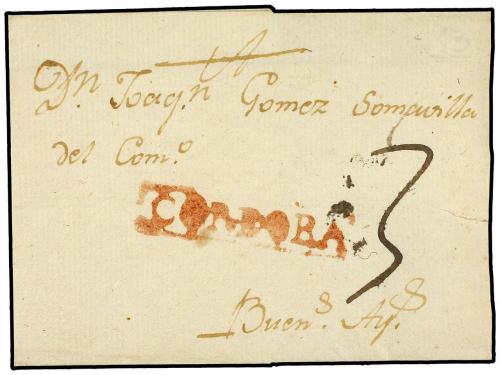 A
Dn. Joaqn. Gomez Somavilla
del Como.
CORDOBA
3
Buens. Ays.